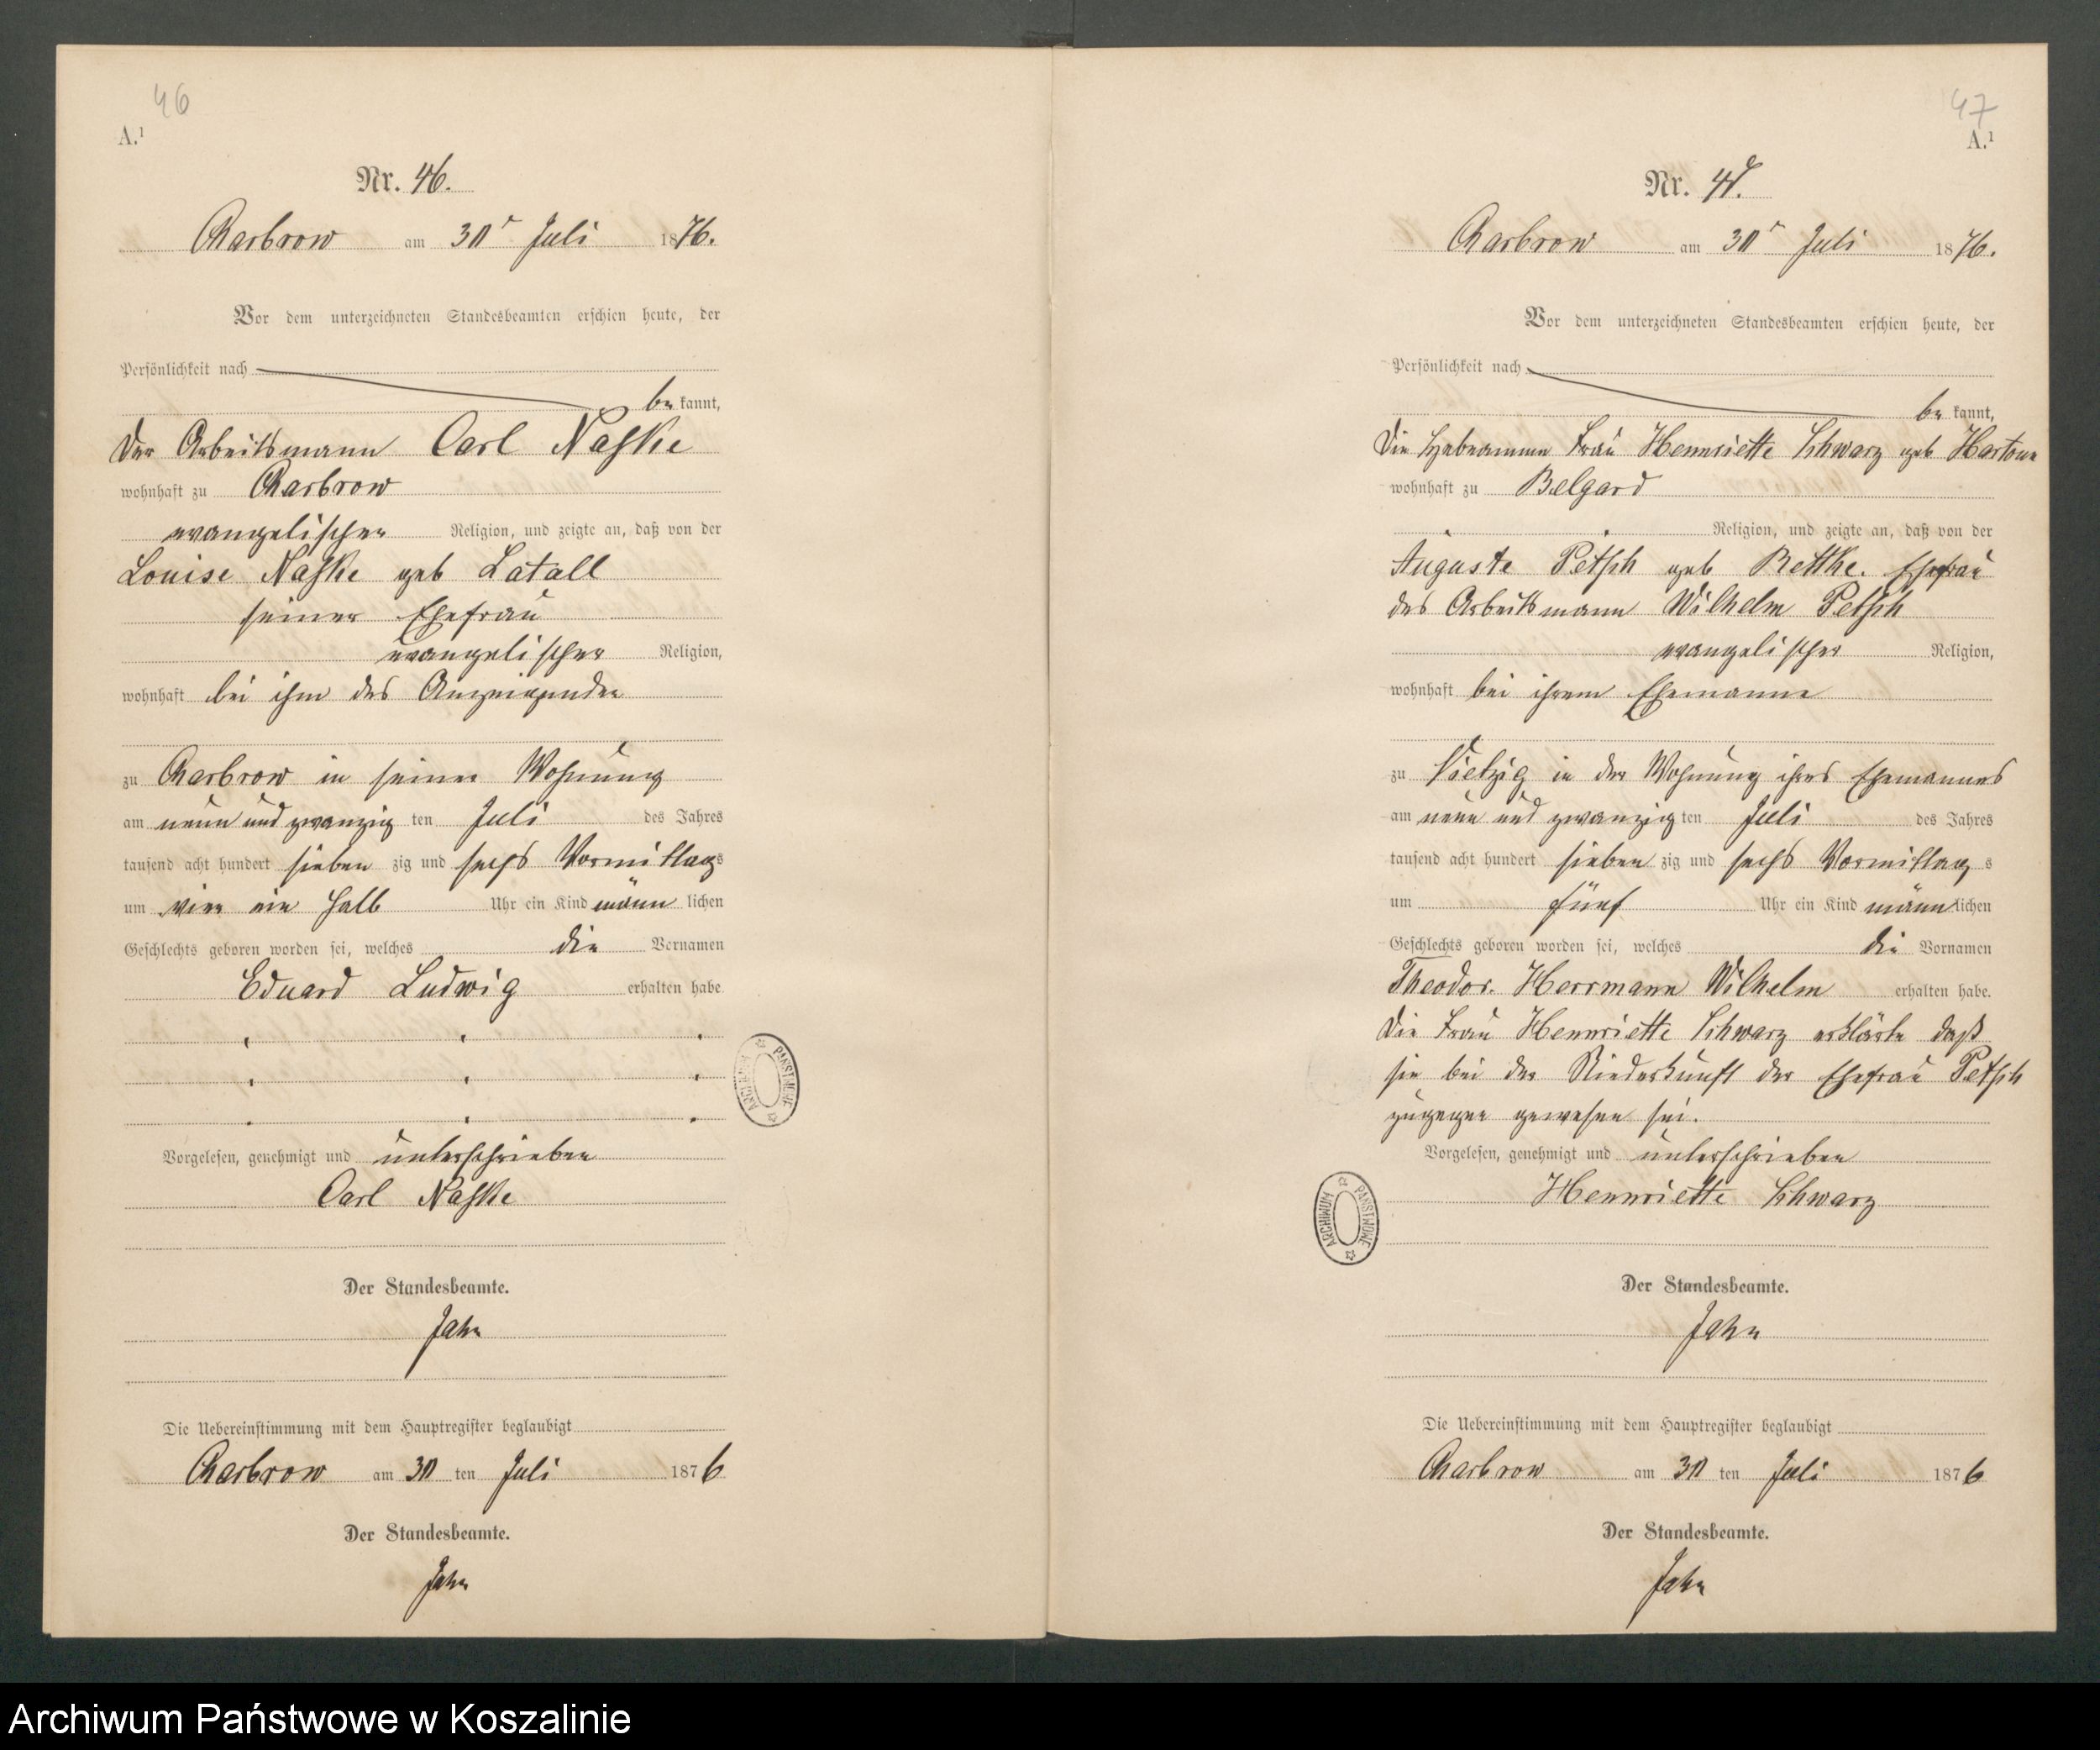 46
A.¹
Nr. 46.
Charbrow am 30ᵗ Juli 1876.
Vor dem unterzeichneten Standesbeamten erschien heute, der
Persönlichkeit nach
be kannt,
der Arbeitsmann Carl Naffke
wohnhaft zu Charbrow
evangelischer Religion, und zeigte an, daß von der
Louise Naffke geb Latall
seiner Ehefrau
evangelischer Religion,
wohnhaft bei ihm des Anzeigenden
zu Charbrow in seiner Wohnung
am neun und zwanzig ten Juli des Jahres
tausend acht hundert sieben zig und sechs Vormittags
um vier ein halb Uhr ein Kind männ lichen
Geschlechts geboren worden sei, welches die Vornamen
Eduard Ludwig erhalten habe.
Vorgelesen, genehmigt und unterschrieben
Carl Naffke
Der Standesbeamte.
Jahn
Die Uebereinstimmung mit dem Hauptregister beglaubigt
Charbrow am 30 ten Juli 1876
Der Standesbeamte.
Jahn
ARCHIWUM PAŃSTWOWE
47
A.¹
Nr. 47.
Charbrow am 30ᵗ Juli 1876.
Vor dem unterzeichneten Standesbeamten erschien heute, der
Persönlichkeit nach
be kannt,
die Hebeamme Frau Hennriette Schwarz geb
wohnhaft zu Belgard
Religion, und zeigte an, daß von der
Auguste Petsch geb Rettke. Ehefrau
des Arbeitsmann Wilhelm Petsch
evangelischer Religion,
wohnhaft bei ihrem Ehemanne
zu Vietzig in der Wohnung ihres Ehemannes
am neun und zwanzig ten Juli des Jahres
tausend acht hundert sieben zig und sechs Vormittag s
um fünf Uhr ein Kind männ lichen
Geschlechts geboren worden sei, welches die Vornamen
Theodor. Herrmann Wilhelm erhalten habe.
die Frau Hennriette Schwarz erklärte daß
sie bei der Niederkunft der Ehefrau Petsch
zugegen gewesen sei.
Vorgelesen, genehmigt und unterschrieben
Hennriette Schwarz
ARCHIWUM PAŃSTWOWE
Der Standesbeamte.
Jahn
Die Uebereinstimmung mit dem Hauptregister beglaubigt
Charbrow am 30 ten Juli 1876
Der Standesbeamte.
Jahn
Archiwum Państwowe w Koszalinie